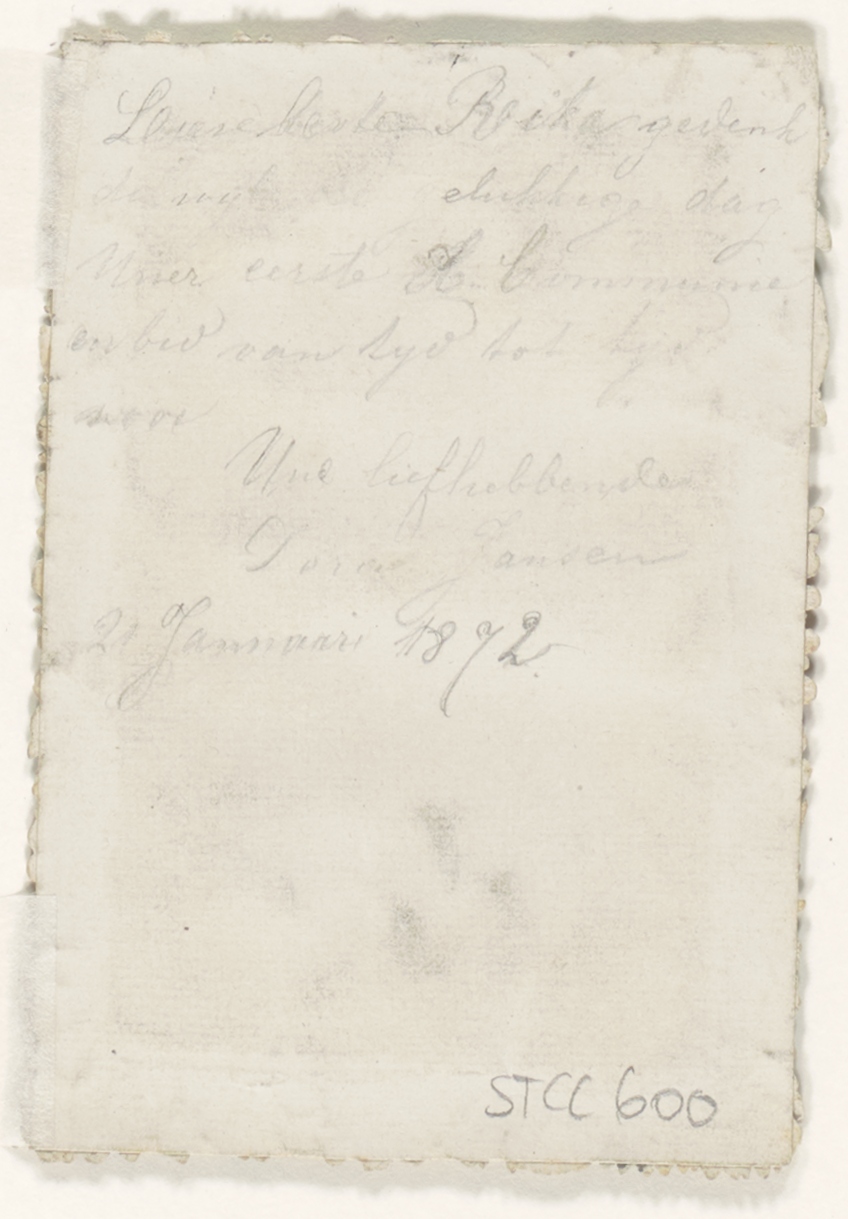 Rika gedenk
elukkige dag
Uwer eerste H. Communie
en bid van tyd tot tyd
voor
Uwe liefhebbende
Dora Jansen
21 Januari 1872
STCC 600